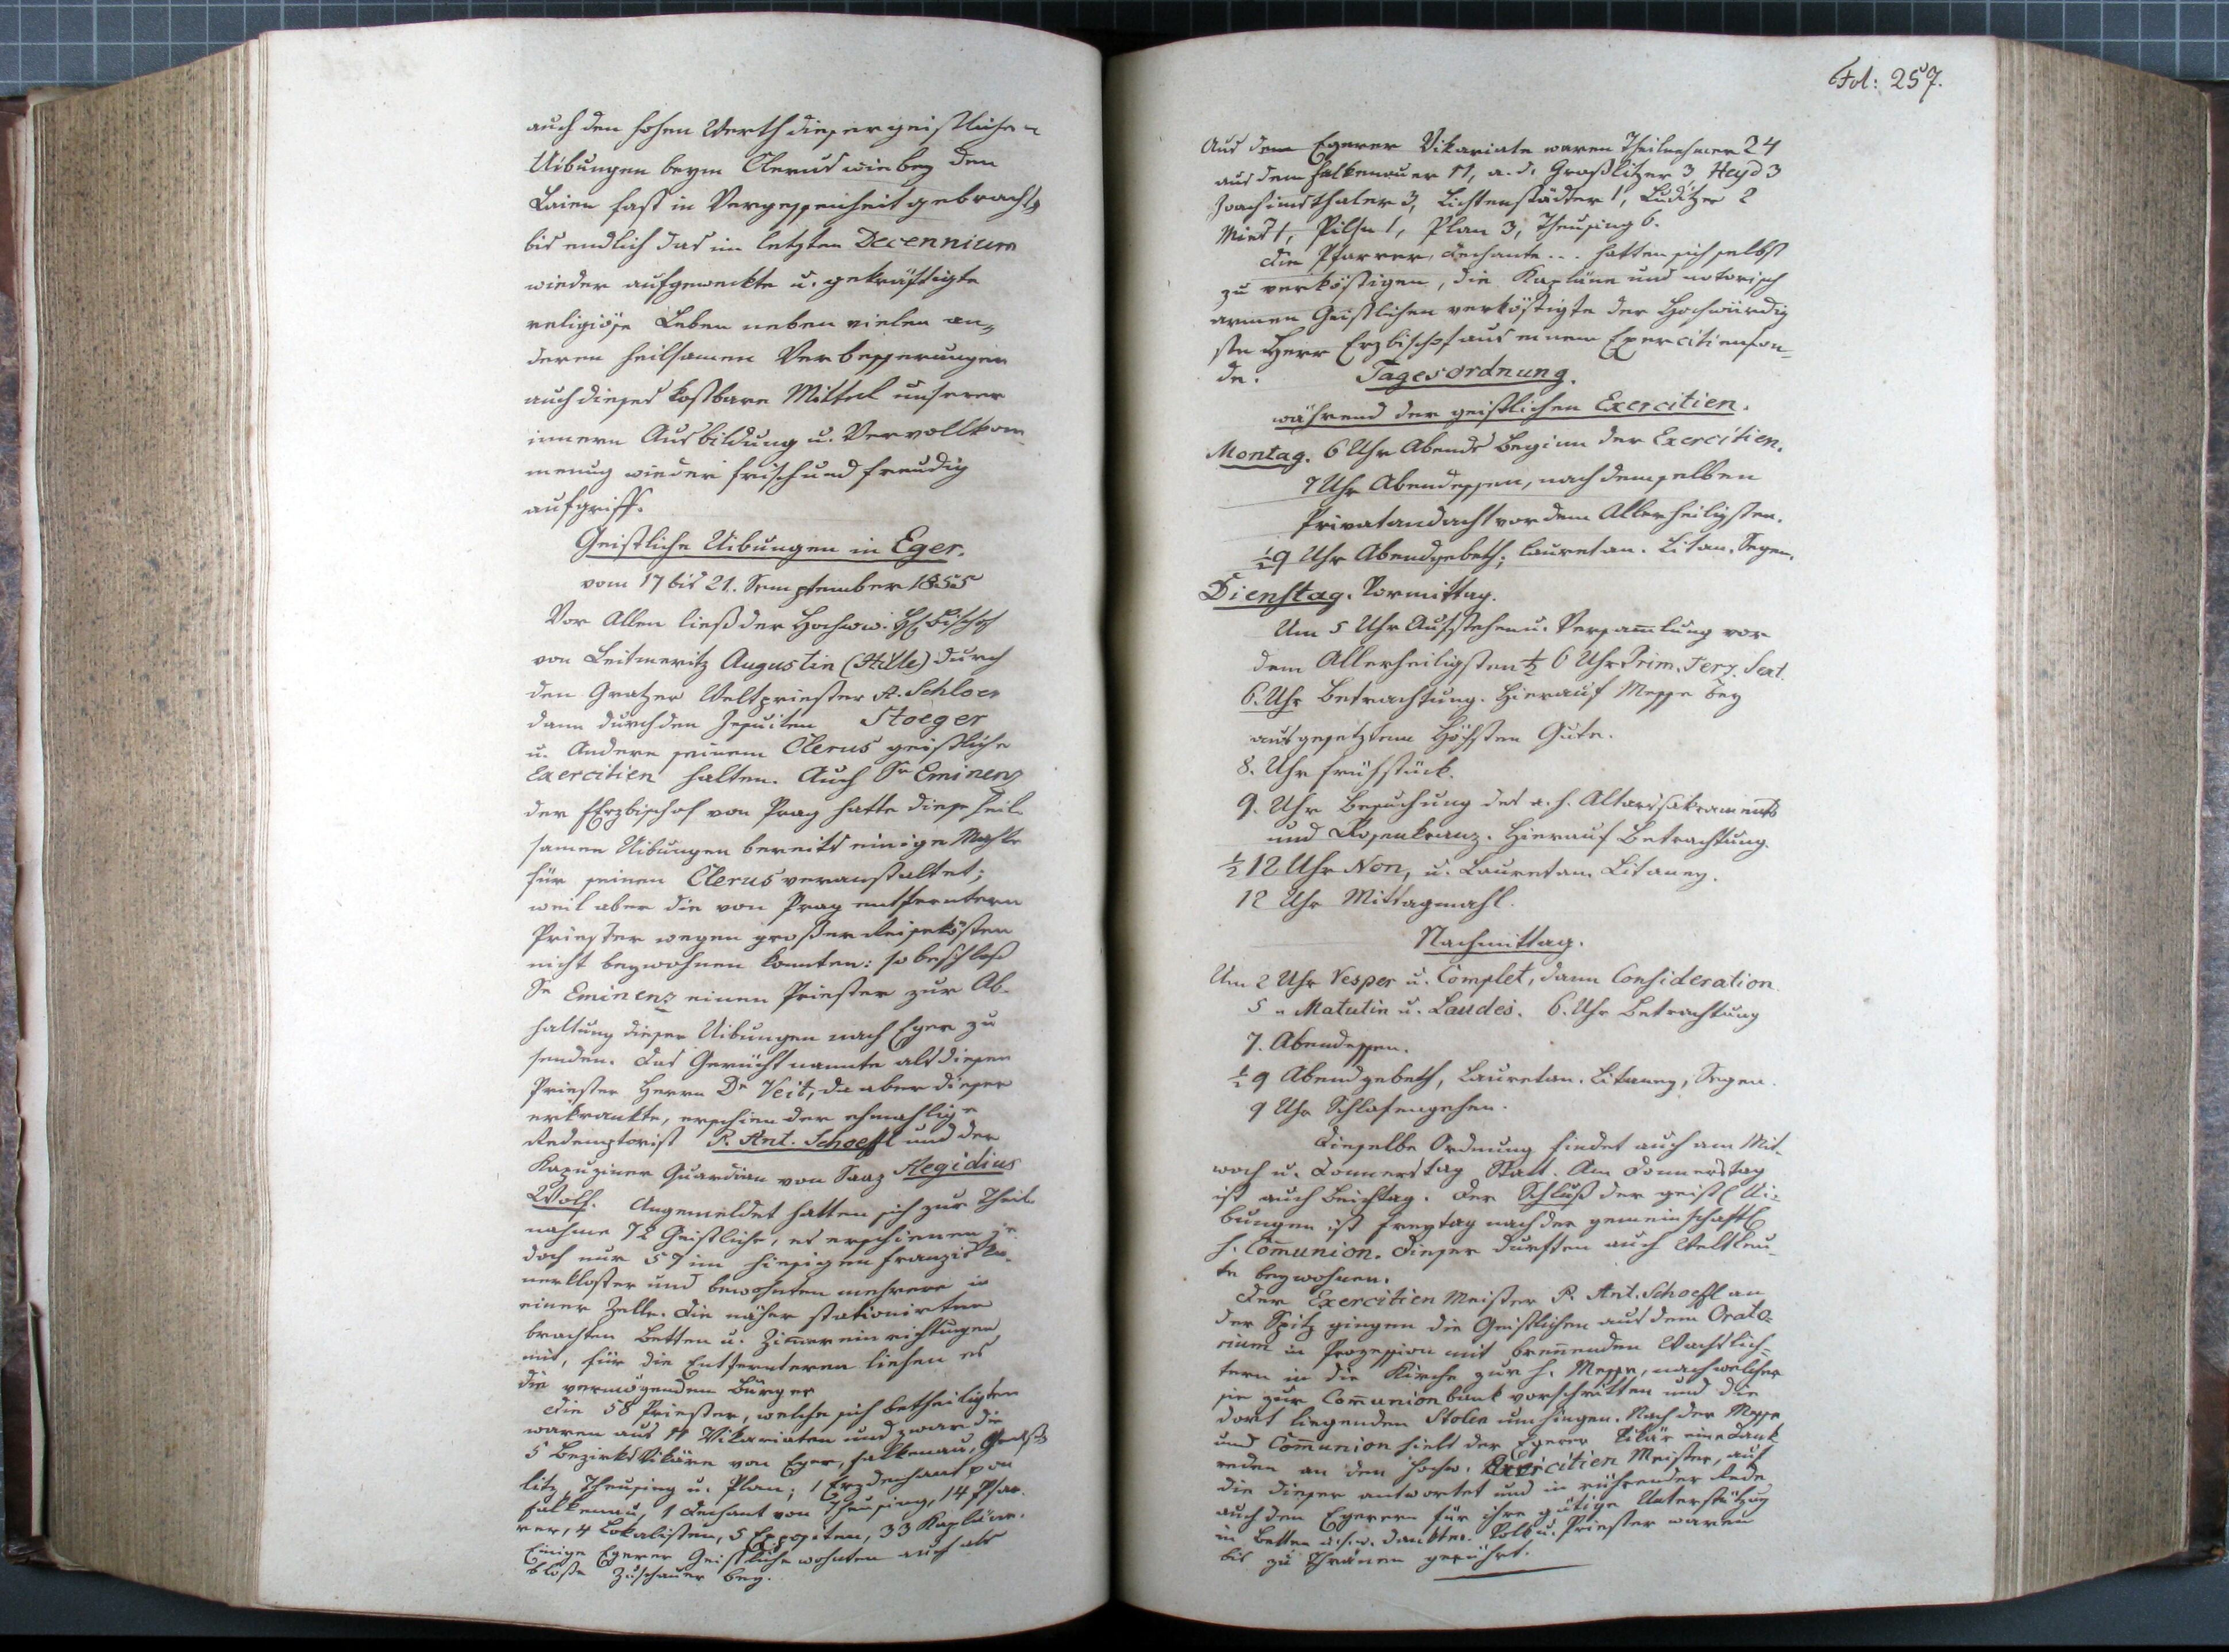 auch den hohen Werth dieser geistlichen
Uibungen beym Clerus wie bey den
Laien fast in Vergessenheit gebracht,
bis endlich das im letzten Decennium
wieder aufgeweckte u. gekräftigte
religiöse Leben neben vielen an„
deren heilsamen Verbesserungen
auch dieses kostbare Mittel unserer
innern Ausbildung u. Vervollkom„
menug wieder frisch und freudig
aufgriff.
Geistliche Uibungen in Eger.
vom 17 bis 21. Semptember 1855
Vor Allen ließ der Hochww. H. Bischof
von Leitmeritz Augustin (Hille) durch
den Gratzer Weltpriester A. Schloer
dann durch den Jesuiten Stoeger
u. Andere seinem Clerus geistliche
Exercitien halten. Auch Se Eminenz
der Erzbischof von Prag hatte diese heil„
samen Uibungen bereits einige Mahle
für seinen Clerus veranstaltet;
weil aber die von Prag entfernteren
Priester wegen großer Reisekösten
nicht beywohnen konnten: so beschloß
Se Eminenz einen Priester zur Ab„
haltung dieser Uibungen nach Eger zu
senden. Das Gerücht nannte als diesen
Priester Herrn Dr Veit, da aber dieser
erkrankte, erschien der ehmahlige
Redemptorist P. Ant. Schoeffl und der
Kapuziner Guardian von Saaz Aegidius
Wolf. Angemeldet hatten sich zur Theil„
nahme 72 Geistliche, es erschienen je„
doch nur 57 im hiesigen Franziska„
nerkloster und bewohnten mehrere in
einer Zelle. Die näher stationirten
brachten Betten u. Zim̅ereinrichtungen
mit, für die Entfernteren liehen es
die vermögenden Bürger
Die 58 Priester, welche sich betheiligten
waren aus 11 Vikariaten und zwar die
5 Bezirks Vikäre von Eger, Falkenau, Graß„
litz, Theusing u. Plan; 1 Erzdechant von
Falkenau, 1 Dechant von Theusing, 14 Pfar„
rer, 4 Lokalisten, 5 Expositen, 33 Kapläne.
Einige Egerer Geistliche wohnten auch als
bloße Zuschauer bey.
Fol: 257.
Aus dem Egerer Vikariate waren Theilnehmer 24
aus dem Falkenauer 11, a. d. Graßlitzer 3, Heyd 3
Joachimsthaler 3, Lichtenstädter 1, Luditzer 2
Mies 1, Pilsn 1, Plan 3, Theusing 6.
Die Pfarrer, Dechante... hatten sich selbst
zu verköstigen, die Kapläne und notorisch
armen Geistlichen verköstigte der Hochwürdig
ste Herr Erzbischof aus einem Exercitienfon„
de.
Tagesordnung.
während der geistlichen Exercitien.
Montag. 6 Uhr Abends Beginn der Exercitien.
7 Uhr Abendessen, nach demselben
Privatandacht vor dem Allerheiligsten.
½9 Uhr Abendgebeth; lauretan. Litan. Segen.
Dienstag. Vormittag.
Um 5 Uhr Aufstehen u. Versam̅lung vor
dem Allerheiligsten ½ 6 Uhr Prim. Terz. Sext.
6. Uhr Betrachtung. Hierauf Messe bey
ausgesetztem Höchsten Gute.
8. Uhr Frühstück.
9. Uhr Besuchung des a. h. Altarssakraments
und Rosenkranz. Hierauf Betrachtung.
½ 12 Uhr Non, u. Lauretan. Litaney.
12 Uhr Mittagmahl.
Nachmittag.
Um 2 Uhr Vesper u. Complet, dann Consideration.
5 „ Matutin u. Laudes. 6. Uhr Betrachtung
7. Abendessen.
½ 9 Abendgebeth, Lauretan. Litaney, Segen.
9 Uhr Schlafengehen.
Dieselbe Ordnung findet auch am Mit„
woch u. Donnerstag Statt. Am Donnerstag
ist auch Beichtag. Der Schluß der geistl. Ui„
bungen ist Freytag nach der gemeinschaftl.
h. Com̅union. Dieser durften auch Weltleu„
te beywohnen.
Der Exercitien Meister P. Ant. Schoeffl an
der Spitz gingen die Geistlichen aus dem Orato„
rium in Prozession mit bren̅enden Wachslich„
tern in die Kirche zur h. Messe, nach welcher
sie zur Com̅unionbank vorschritten und die
dort liegenden Stolen umhingen. Nach der Messe
und Com̅union hielt der Egerer Vikär eine Dank
reden an den hochw. Exercitien Meister, auf
die dieser antwortet und in rührender Rede
auch den Egerern für ihre gütige Unterstützug
in Betten u.s.w. dankten. Volk u. Priester waren
bis zu Thränen gerührt.